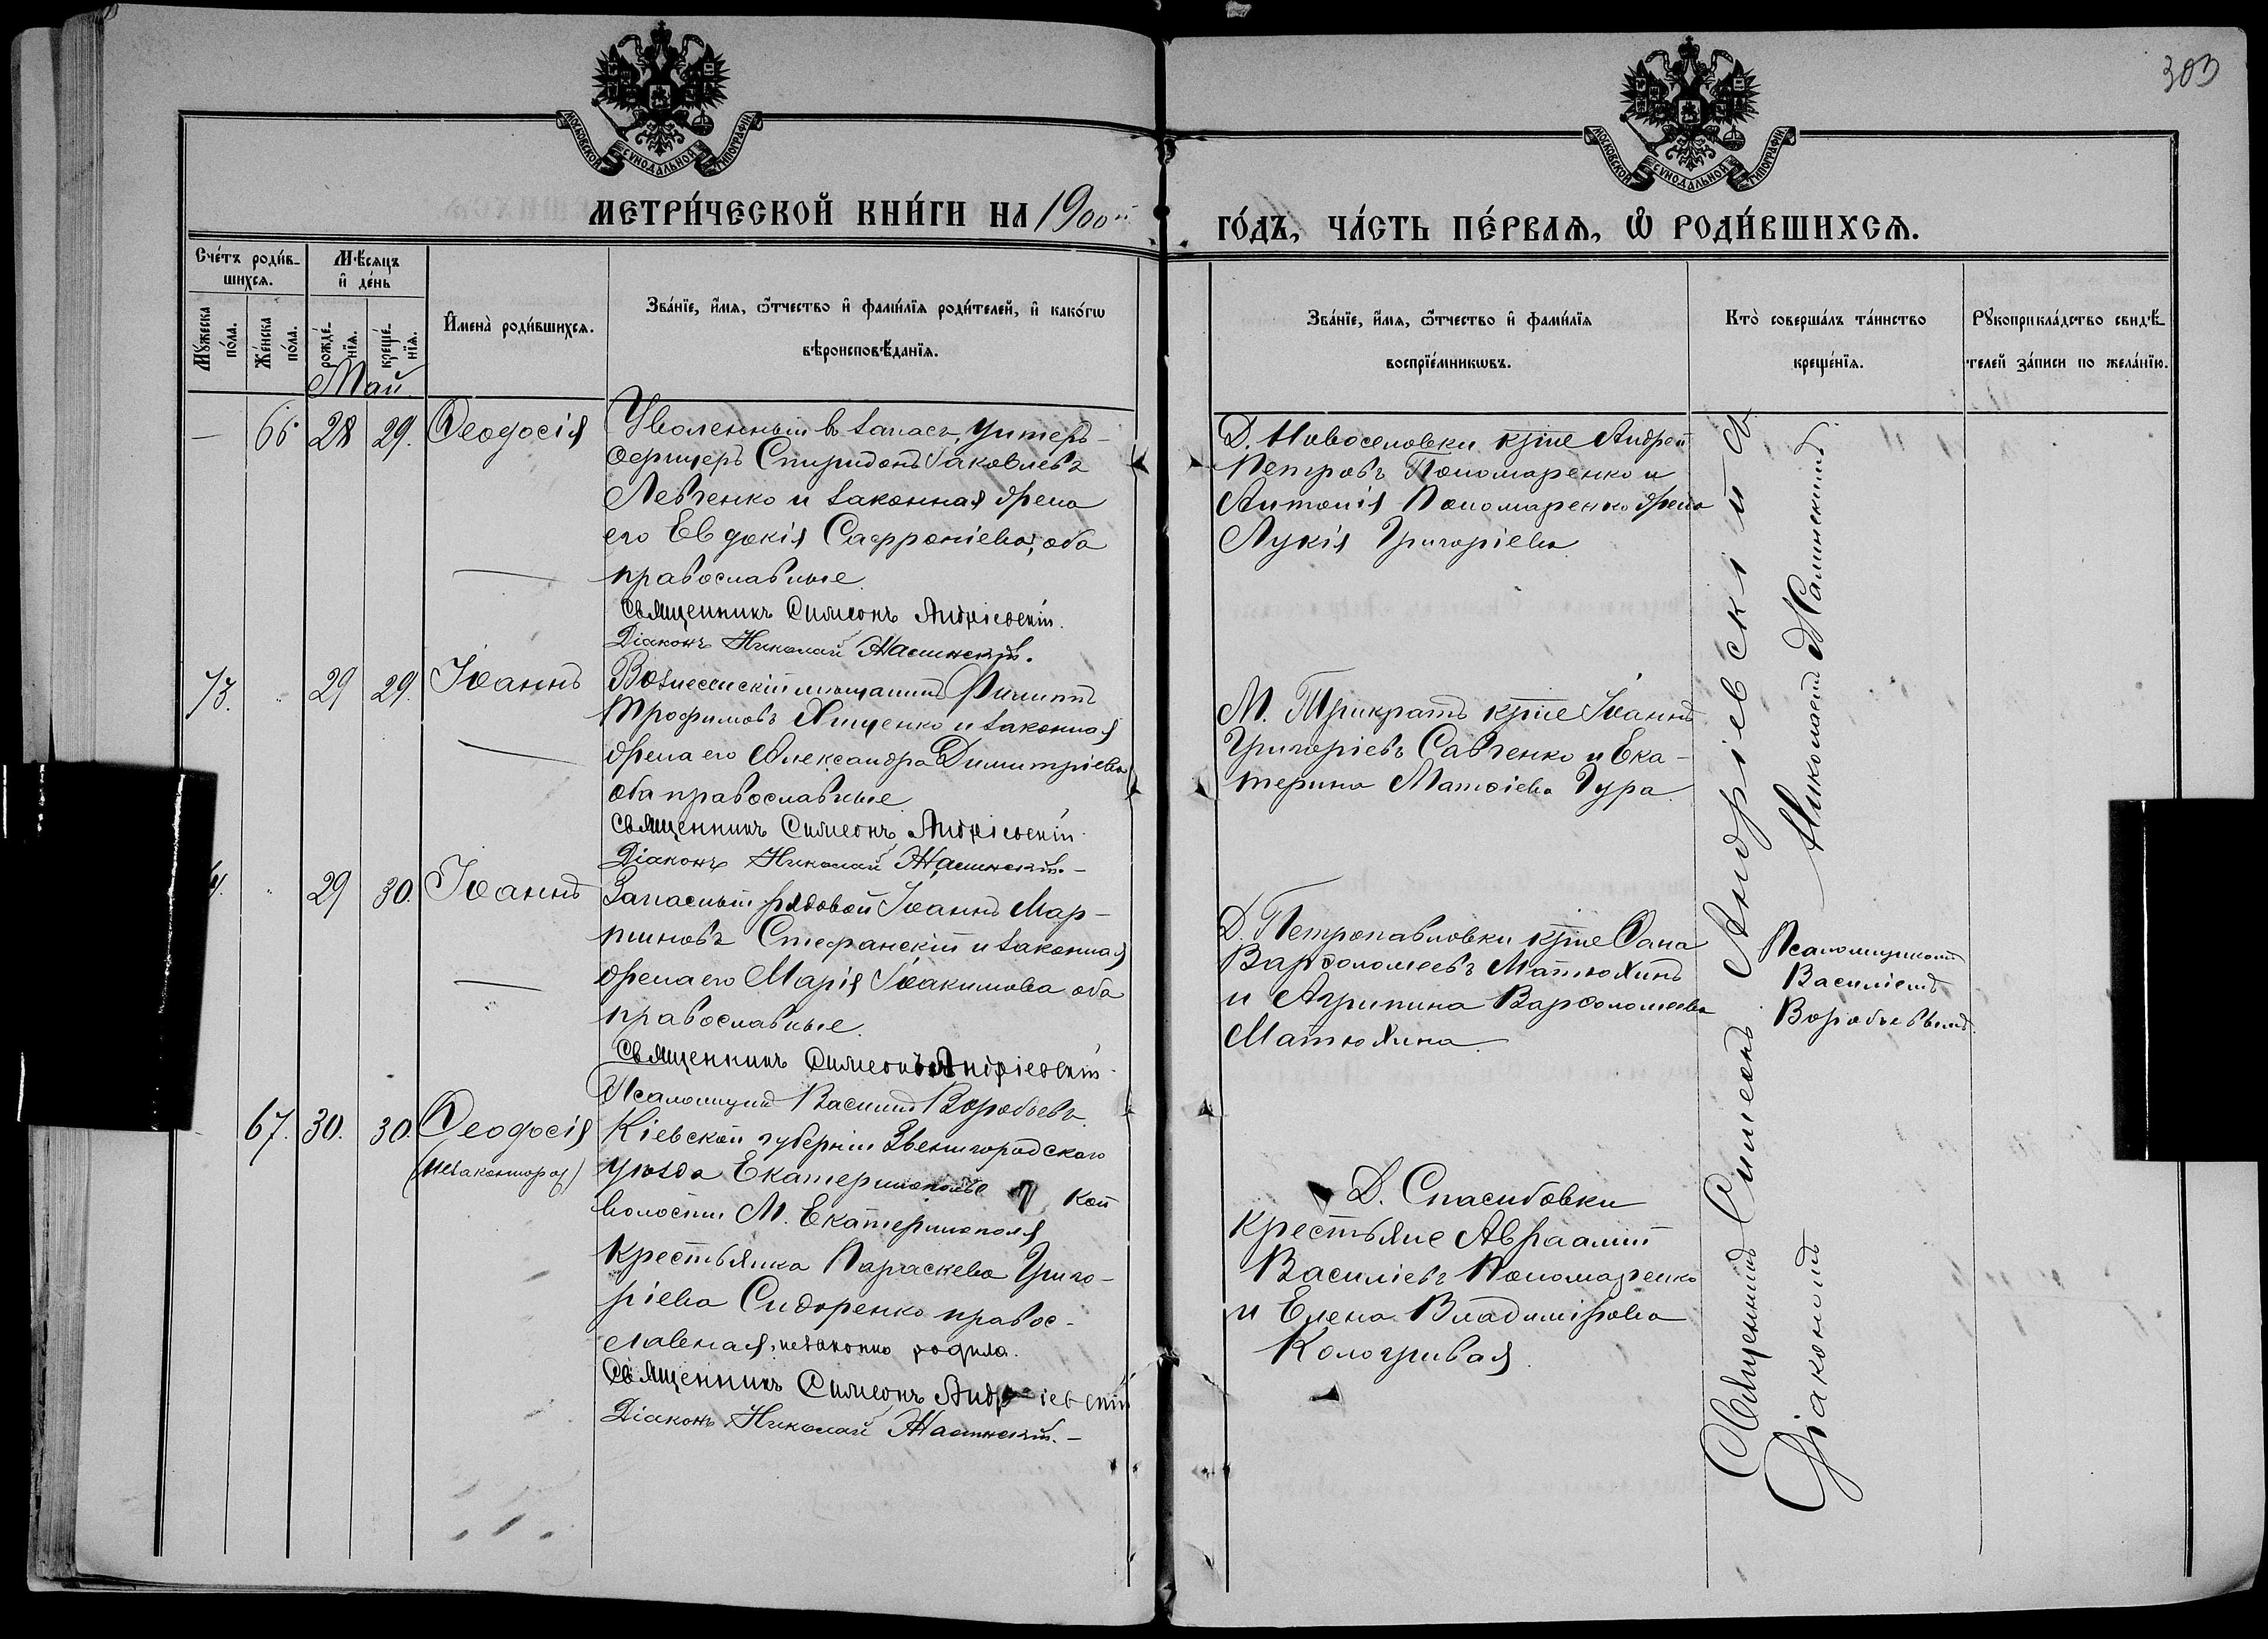 303
МОСКОВСКОЙ СУНОДАЛЬНОЙ ТИПОГРАФІИ
МОСКОВСКОЙ СУНОДАЛЬНОЙ ТИПОГРАФІИ
МЕТРИ́ЧЕСКОЙ КНИ́ГИ НА 1900й
ГО́ДЪ, ЧА́СТЬ ПЕ́РВАЯ, Ѡ РОДИ́ВШИХСЯ.
Сче́тъ роди́в-
шихся.
Мꙋ́жеска
по́ла.
Же́нска
по́ла.
Мѣ́сяцъ
и҆ де́нь
рожде́-
нїя.
креще́-
нїя.
И҆мена̀ роди́вшихся.
Зва́нїе, и҆́мя, ѻ҆́тчество и҆ фами́лїя роди́телей, и҆ како́гѡ
вѣроисповѣ́данїя.
Зва́нїе, и҆́мя, ѻ҆́тчество и҆ фами́лїя
воспрїе́мникѡвъ.
Кто̀ соверша́лъ та́инство
креще́нїя.
Рꙋкоприкла́дство свидѣ́-
телей за́писи по жела́нїю.
Май
— 66 28 29. Ѳеодосія
Уволенный въ запасъ, унтеръ-
офицеръ Спиридонъ Іаковлевъ
Левченко и законная жена
его Евдокія Сафроніева, оба
православные
Священникъ Симеонъ Андріевскій.
Діаконъ Николай Жалинскій.
Д. Новоселовки кр͞не Андрей
Петровъ Пономаренко и
Антонія Пономаренко жена
Лукія Григоріева
73. " 29 29. Іоаннъ
Вознесенскій мѣщанинъ Филиппъ
Трофимовъ Хищенко и законная
жена его Александра Димитріева
оба православные
Священникъ Симеонъ Андріевскій.
Діаконъ Николай Жалинскій.-
М. Трикратъ кр͞не Іоаннъ
Григоріевъ Савченко и Ека-
терина Матѳіева Гура.
4. " 29 30. Іоаннъ
Запасный рядовой Іоаннъ Мар-
тиновъ Стефанскій и законная
жена его Марія Іоакимова оба
православные.
Священникъ Симеонъ Андріевскій.
Псаломщикъ Василій Воробьевъ.
Д. Петропавловки кр͞не
Варѳоломеевъ Матюхинъ
и Агрипина Варѳоломеева
Матюхина.
67. 30. 30. Ѳеодосія
(незаконнорож)
Кіевской губерніи Звенигородского
уѣзда Екатеринополь кой
волости М. Екатеринополя
крестьянка Параскева Григо-
ріева Сидоренко правос-
лавная, незаконно родила.
Священникъ Симеонъ Андріевскій
Діаконъ Николай Жалинскій.-
Д. Спасибовки
крестьяне Авраамій
Василіевъ Пономаренко
и Елена Владимірова
Кологривая.
Священникъ Симеонъ Андріевскій и
Діакономъ Николаемъ Жалинскимъ.
Псаломщикомъ
Василіемъ
Воробьевымъ.